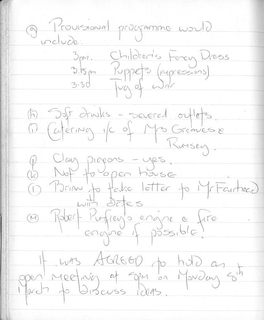 (g) Provisional programme would
include.
3pm. Children's Fancy Dress
3.15pm Puppets (impressions)
3.30 Tug of War
(h) Soft drinks - several outlets.
Catering i/c of Mrs &
Rumsey.
Clay pigeons - yes.
(k) Not to open house
(l) Brian to take letter to Mr Fairhead
with dates
(m) Robert engine & fire
engine if possible.
It was AGREED to hold an
open meeting at 8pm on Monday 8th
March to discuss ideas.